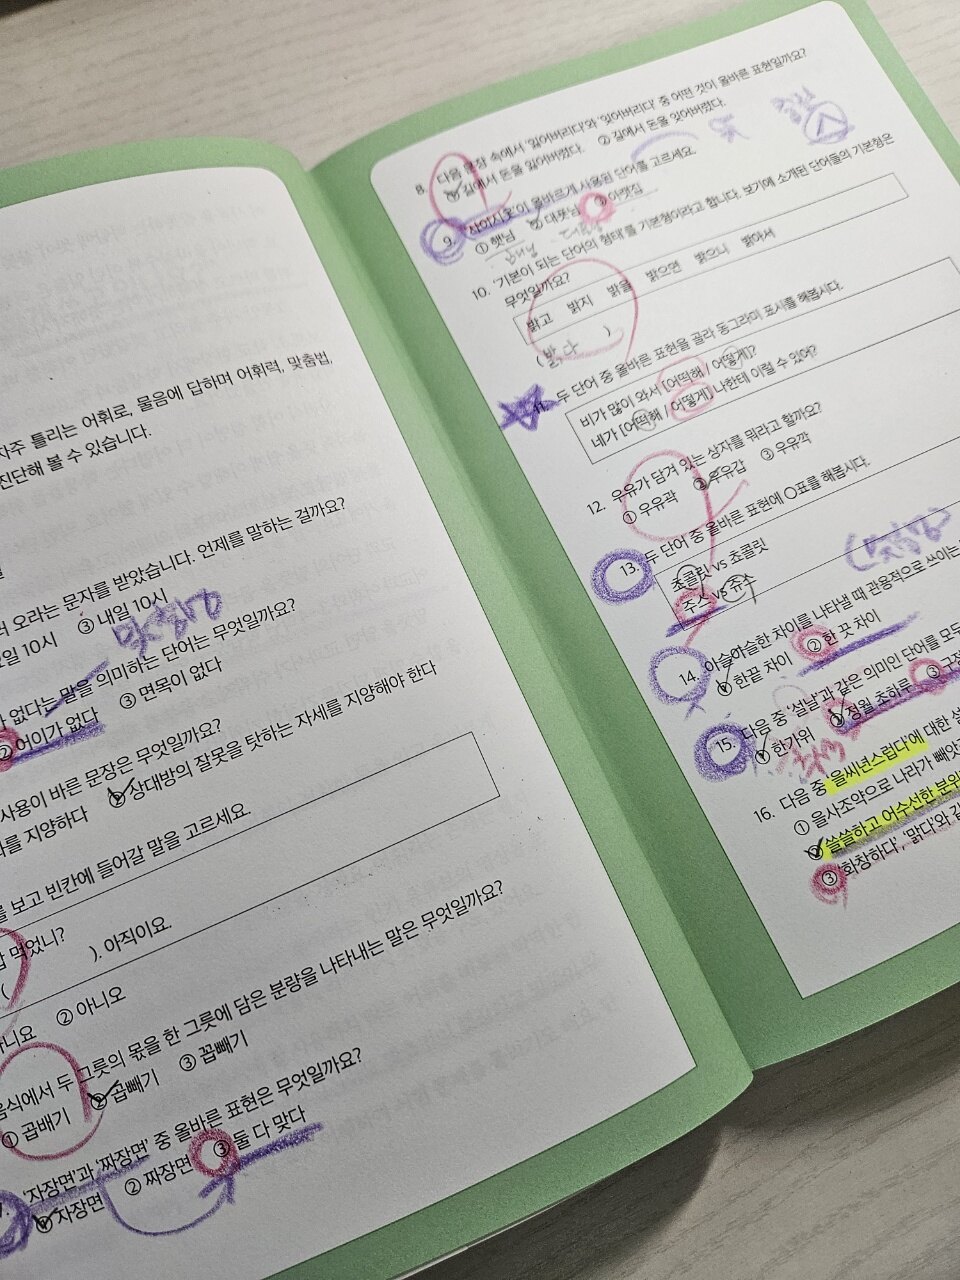 자주 틀리는 어휘로, 물음에 답하며 어휘력, 맞춤법,
진단해 볼 수 있습니다.
오라는 문자를 받았습니다. 언제를 말하는 걸까요?
10시 ③ 내일 10시
맞춤법
없다는 말을 의미하는 단어는 무엇일까요?
② 어이가 없다 ③ 면목이 없다
사용이 바른 문장은 무엇일까요?
를 지양하다 ② 상대방의 잘못을 탓하는 자세를 지양해야 한다
보고 빈칸에 들어갈 말을 고르세요.
먹었니?
( ). 아직이요.
② 아니오
음식에서 두 그릇의 몫을 한 그릇에 담은 분량을 나타내는 말은 무엇일까요?
① 곱배기 ② 곱빼기 ③ 꼽빼기
'자장면'과 '짜장면' 중 올바른 표현은 무엇일까요?
① 자장면 ② 짜장면 ③ 둘 다 맞다
8. 다음 문장 속에서 '잃어버리다'와 '잊어버리다' 중 어떤 것이 올바른 표현일까요?
① 길에서 돈을 잃어버렸다. ② 길에서 돈을 잊어버렸다.
9. '사이시옷'이 올바르게 사용된 단어를 고르세요.
① 햇님 ② 대푯님 ③ 아랫집
10. '기본이 되는 단어의 형태'를 기본형이라고 합니다. 보기에 소개된 단어들의 기본형은
무엇일까요?
밝고 밝지 밝을 밝으면 밝으니 밝아서
(밝다 )
11. 두 단어 중 올바른 표현을 골라 동그라미 표시를 해봅시다.
비가 많이 와서 [어떡해 / 어떻게]?
네가 [어떡해 / 어떻게] 나한테 이럴 수 있어?
12. 우유가 담겨 있는 상자를 뭐라고 할까요?
① 우유곽 ② 우유갑 ③ 우유깍
13. 두 단어 중 올바른 표현에 O표를 해봅시다.
초콜릿 vs 쵸콜릿
주스 vs 쥬스
14. 아슬아슬한 차이를 나타낼 때 관용적으로 쓰이는
① 한끝 차이 ② 한 끗 차이
15. 다음 중 '설날'과 같은 의미인 단어를 모두
① 한가위 ② 정월 초하루 ③
16. 다음 중 '을씨년스럽다'에 대한 설
① 을사조약으로 나라가 빼앗
② 쓸쓸하고 어수선한 분위
③ '화창하다', '맑다'와 같